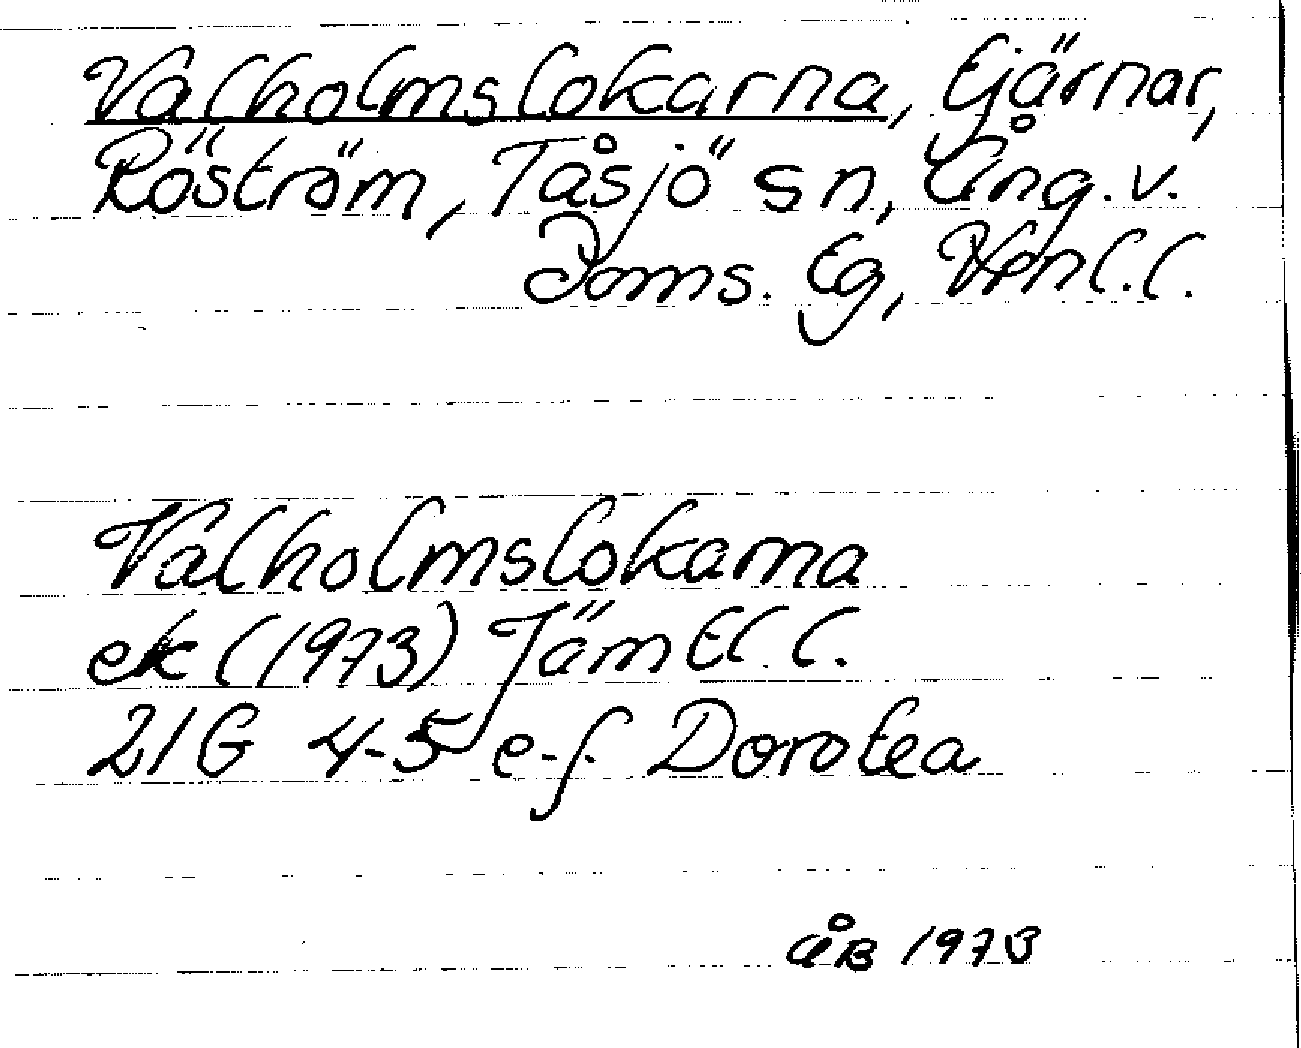 Valholmslokarna, tjärnar,
Röström, Tåsjö sn, Ång. v.
Doms. Eg, Vbnl.l.
Valholmslokarna
ek (1973) Jämtl.l.
21G 4-5 e-f Dorotea
ÅB 1973